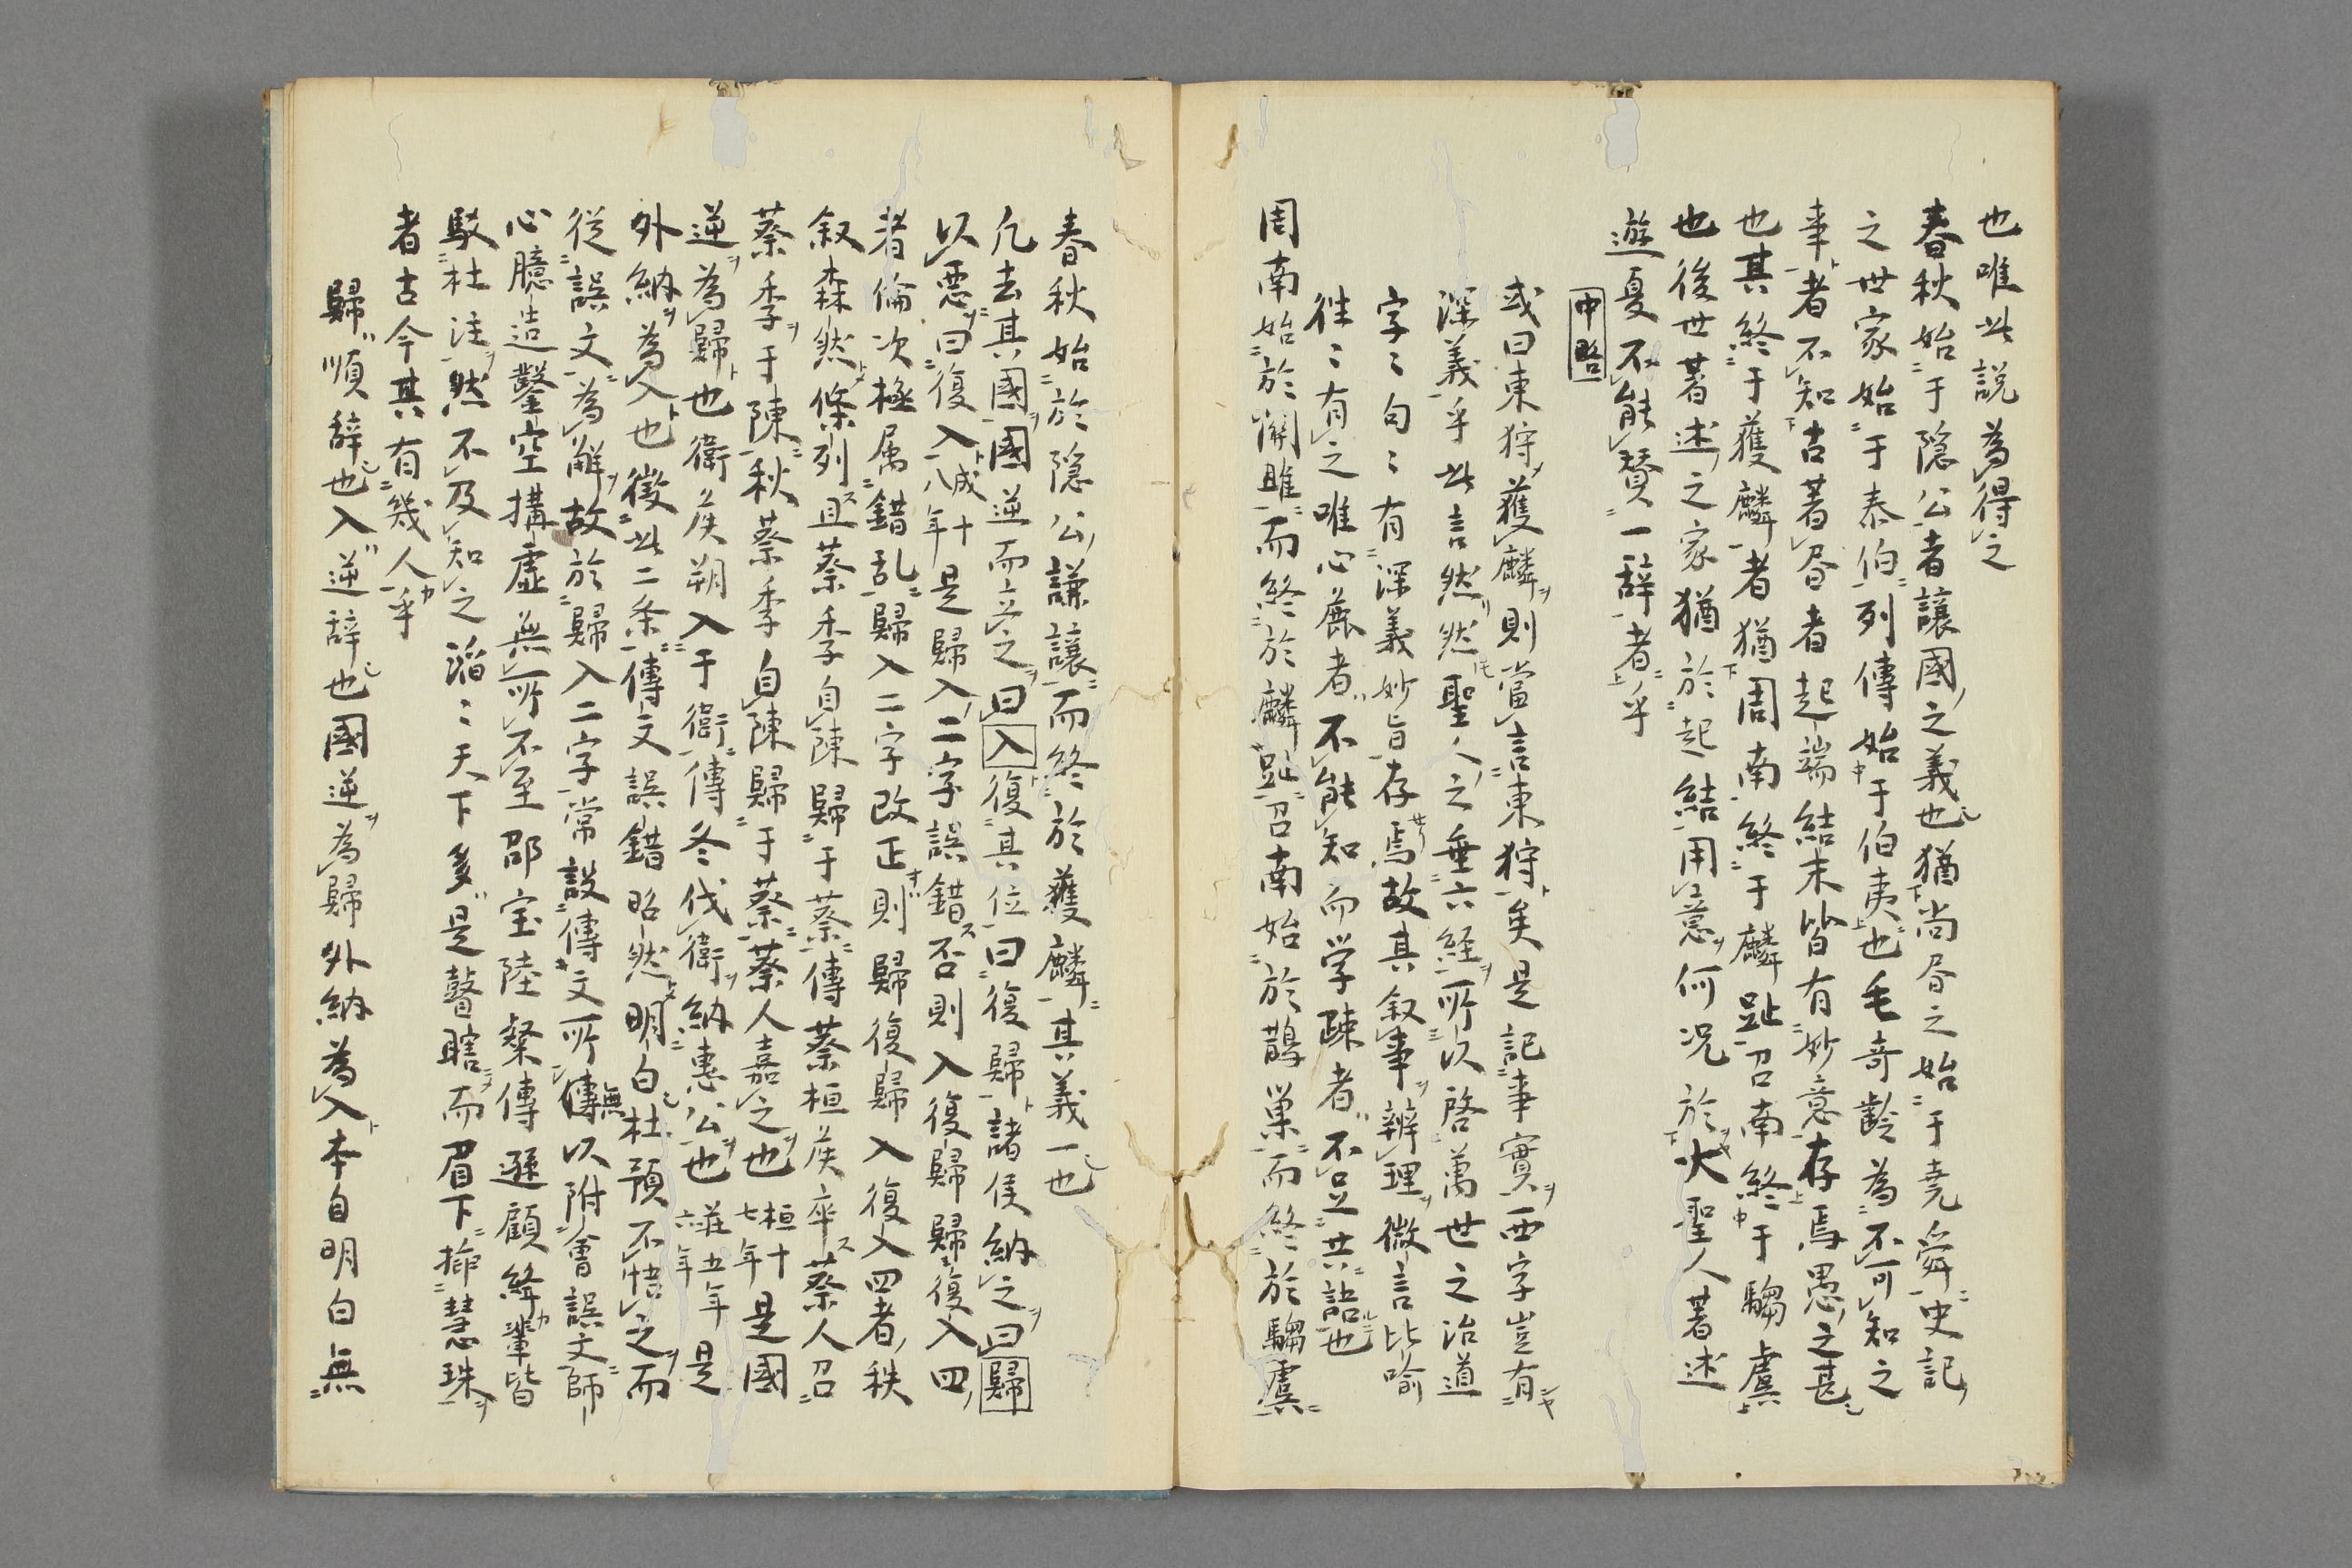 也唯此説為得之
春秋始于隠公者譲國之義也猶尚書之始于堯舜史記
之世家始于泰伯列傳始于伯夷也毛奇齡為不可知之
事者不知古著書者起端結末皆有妙意存焉愚之甚
也其終于獲麟者猶周南終于麟趾召南終于騶虞
也後世著述之家猶於起結用意何况於大聖人著述
遊夏不能賛一辞者乎
中略
或曰東狩獲麟則當言東狩矣是記事實西字豈有
深義乎此言然然聖人之垂六經所以啓萬世之治道
字〻句〻有深義妙旨存焉故其叙事辨理微言比喻
徃〻有之唯心麁者不能知而学疎者不足共語也
周南始於關雎而終於麟趾召南始於鵲巣而終於騶虞
春秋始於隠公謙譲而終於獲麟其義一也
凡去其國國逆而立之曰入復其位曰復歸諸侯納之曰歸
以惡曰復入成十八年是歸入二字誤錯否則入復歸歸復入四
者倫次極属錯乱歸入二字改正則歸復歸入復入四者秩
叙森然條列且蔡季自陳歸于蔡傳蔡桓侯卒蔡人召
蔡季于陳秋蔡季自陳歸于蔡蔡人嘉之也桓十七年是國
逆為歸也衛侯朔入于衛傳冬伐衛納惠公也荘五年六年是
外納為入也徴此二条傳文誤錯昭然明白杜預不悟之而
從誤文為解故於歸入二字常設傳文所無傳以附會誤文師
心臆造鑿空搆虚無所不至邵宝陸粲傳遜顧絳輩皆
駁杜注然不及知之滔〻天下多是瞽瞎而眉下揤慧珠
者古今其有幾人乎
歸順辞也入逆辞也國逆為歸外納為入本自明白無